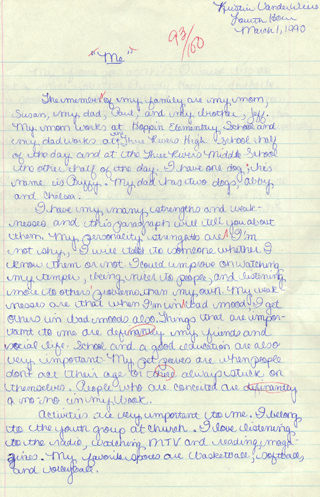 Kristin VanderWiere
Fourth Hour
March 1, 1990
93/100
"Me"
The members of my family are my mom,
Susan, my dad, Paul, and my brother, Jeff.
My mom works at Hoppin Elementary School and
my dad works at Three Rivers High School half
of the day and at the Three Rivers Middle School
the other half of the day. I have one dog; his
name is Puffy. My dad has two dogs, Abby
and Shelsea.
I have my many strengths and weak-
nesses and this paragraph will tell you about
them. My personality strengths are I'm
not shy, I will talk to someone whether I
know them or not I could improve on watching
my temper, being nicer to people, and listening
more to others problems than my own. My weak
nesses are that when I'm in bad mood I get
others in bad moods also. Things that are impor-
tant to me are definately my friends and
social life. School and a good education are also
very important. My pet peeves are when people
don't act their age or those always stuck on
themselves. People who are conceited are definantly
a no no in my book.
Activities are very important to me. I belong
to the youth group at church. I love listening
to the radio, watching MTV and reading maga-
zines. My favorite sports are basketball, softball,
and volleyball.